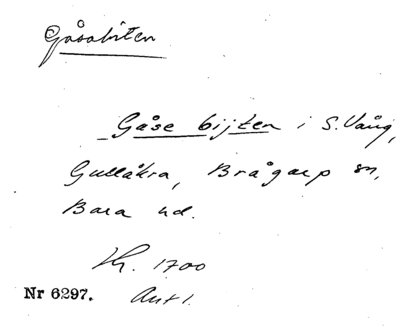 Gåsabiten
Gåse bijten i S. Vång,
Gullåkra, Brågarp sn,
Bara hd.
Lk. 1700
Nr 6297. Ant 1.